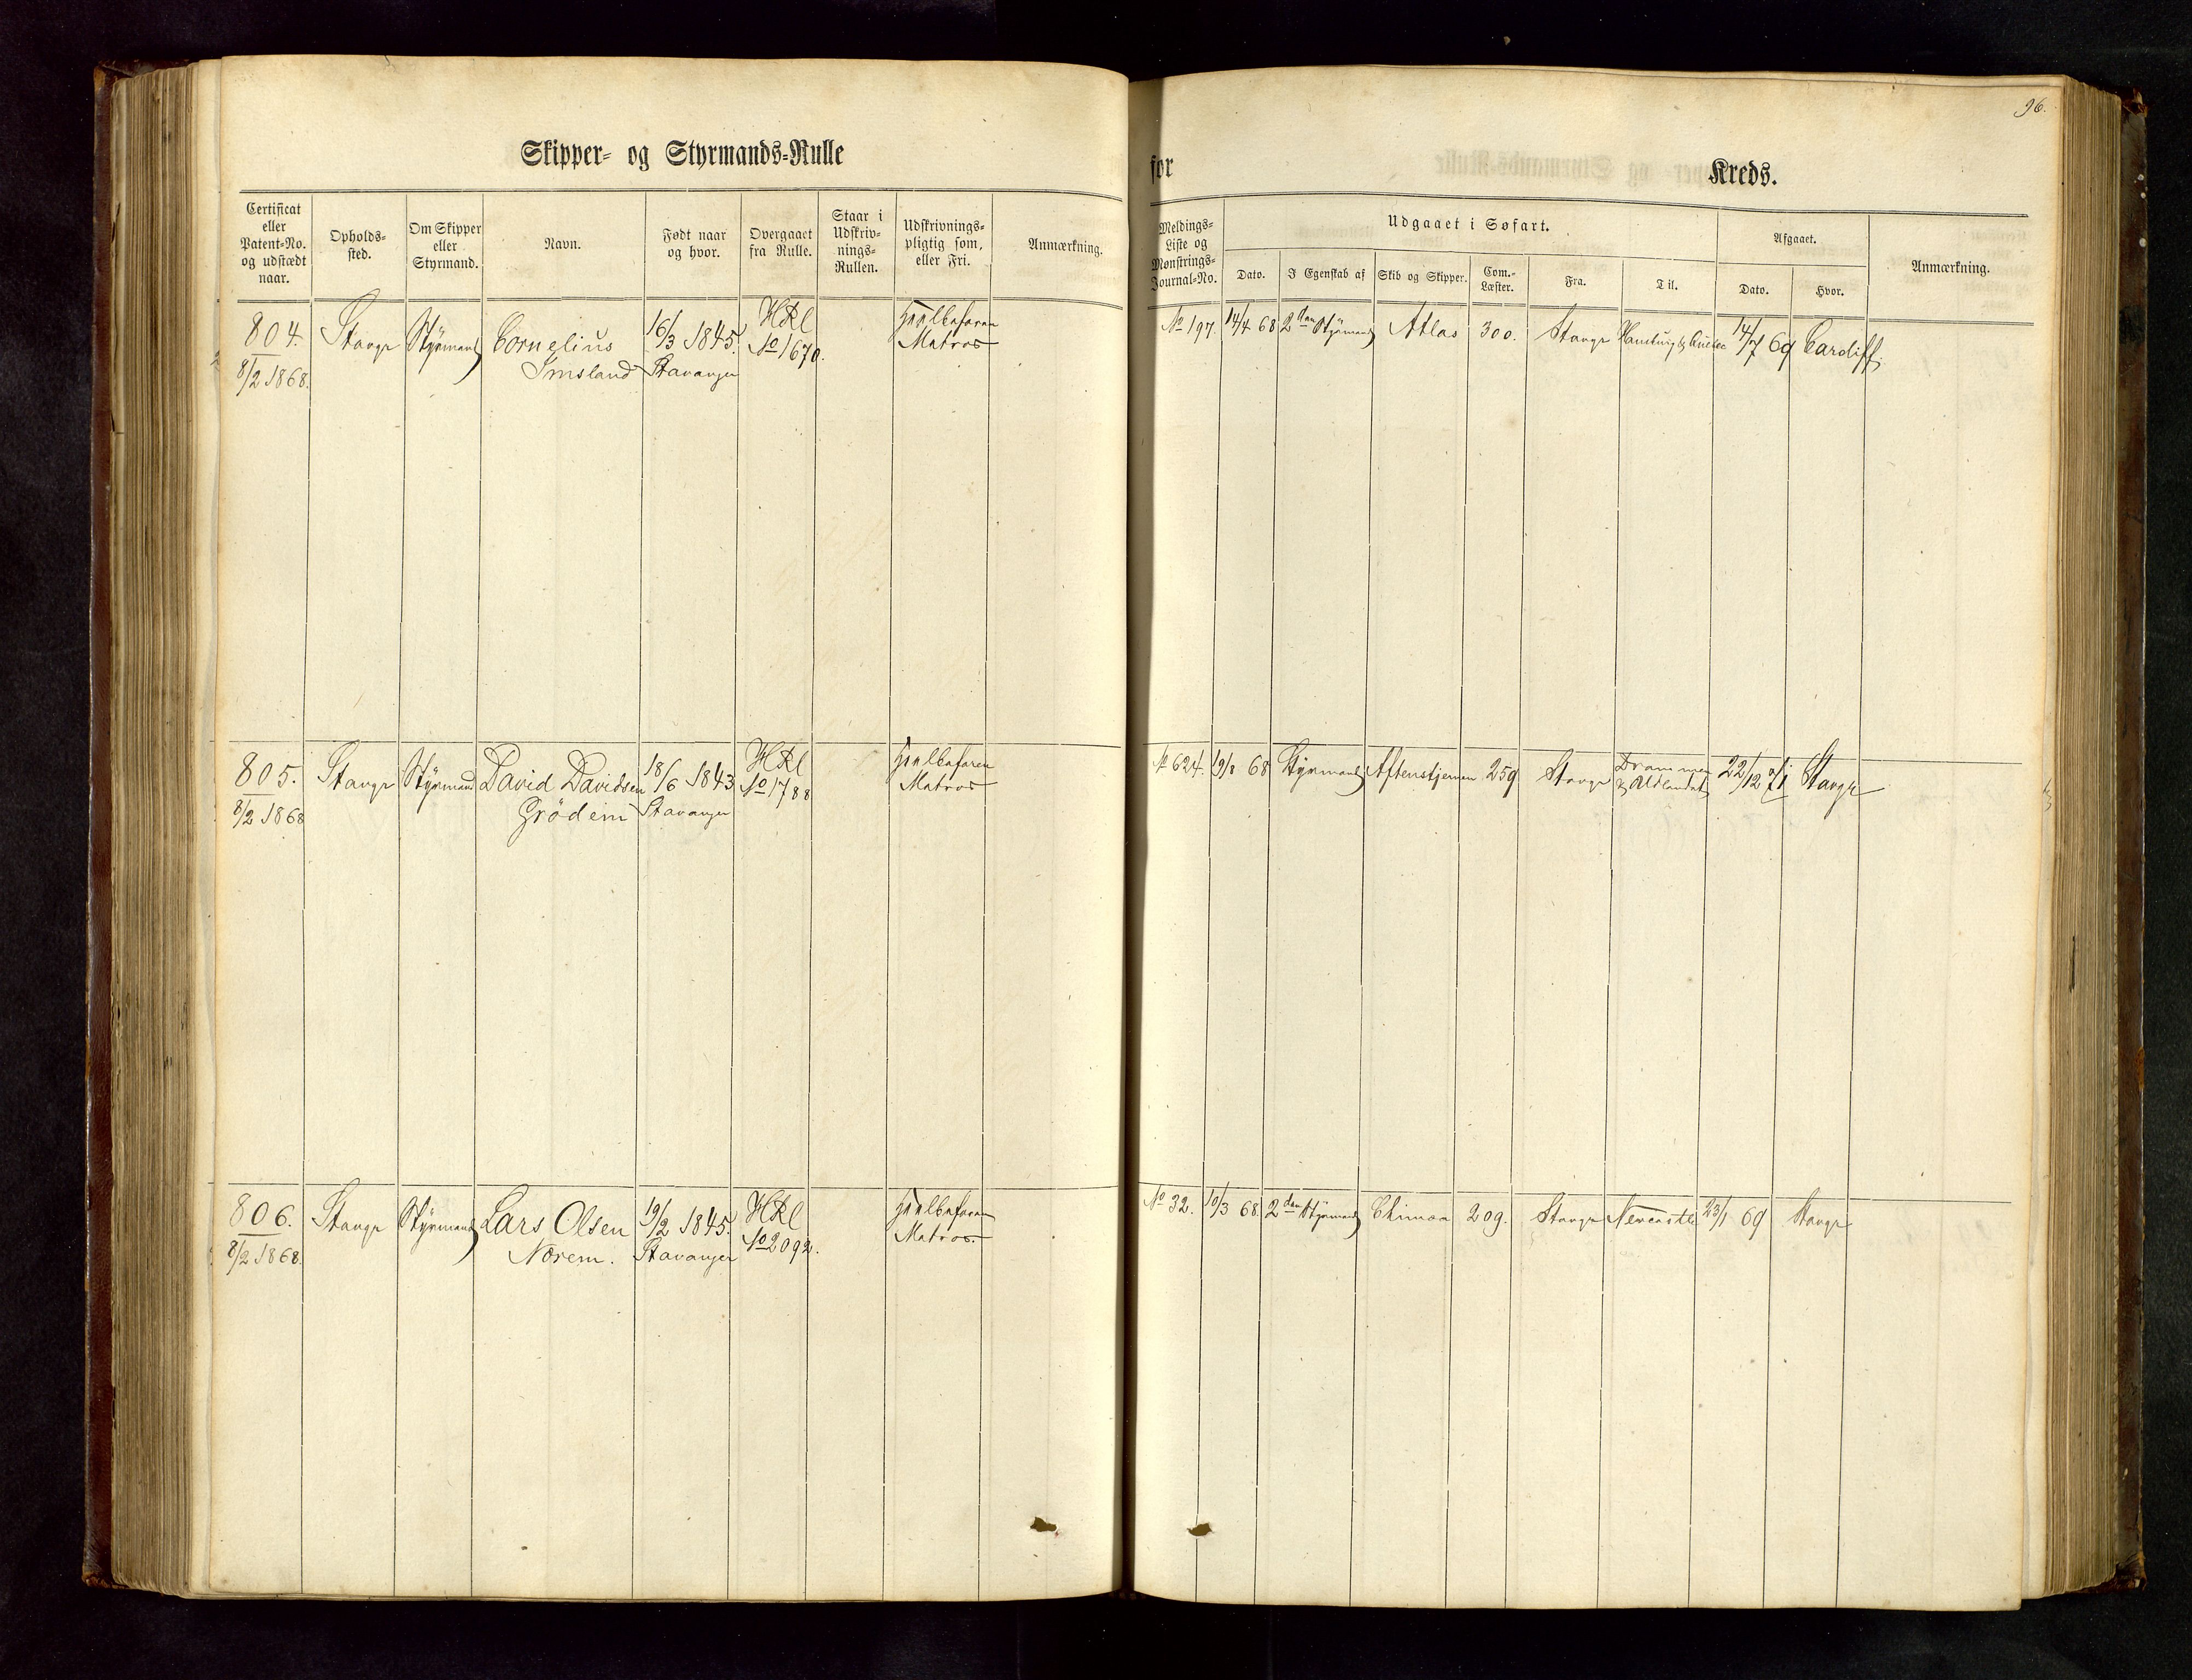 96.
Skipper- og Styrmands-Rulle
for Kreds.
Certificat eller Patent-No. og udstædt naar.
Opholds-sted.
Om Skipper eller Styrmand.
Navn.
Født naar og hvor.
Overgaaet fra Rulle.
Staar i Udskriv-nings-Rullen.
Udskrivnings-pligtig som, eller Fri.
Anmærkning.
Meldings-Liste og Mønstrings-Journal-No.
Udgaaet i Søfart.
Dato.
I Egenskab af
Skib og Skipper.
Com.-Læster.
Fra.
Til.
Afgaaet.
Dato.
Hvor.
Anmærkning.
804. Stavgr Styrmand Cornelius 16/3 1845. HRl Heelbefaren No 197. 14/4 68 2den Styrmand Atlas 300. Stavgr Hamburg & Quebec 14/7 69 Cardiff.
8/2 1868. Imsland Stavanger No 1670. Matros
805. Stavgr Styrmand David Davidsen 18/6 1843 HRl Heelbefaren No 624. 19/8 68 Styrmand Aftenstjernen 259 Stavgr Drammen 22/12 71 Stavgr
8/2 1868 Grödem Stavanger No 1788 Matros & Udlandet
806. Stavgr Styrmand Lars Olsen 19/2 1845. HRl Heelbefaren No 32. 10/3 68. 2den Styrmand 209. Stavgr Newcastle 23/1 69 Stavgr
8/2 1868. Norem. Stavanger No 2092. Matros.